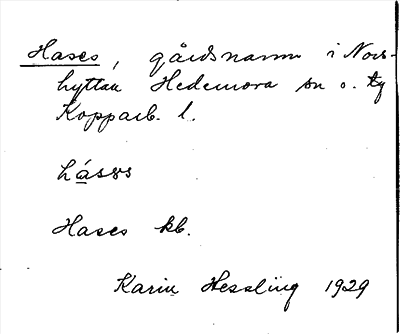 Hases, gårdsnamn i Nors-
hyttan Hedemora sn o. tg
Kopparb. l.
Hases kb.
Karin Hessling 1929